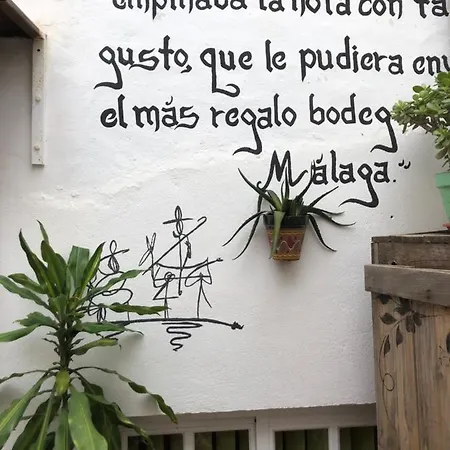 empinaba la bota con ta
gusto, que le pudiera env
el más regalo bodeg
Málaga."